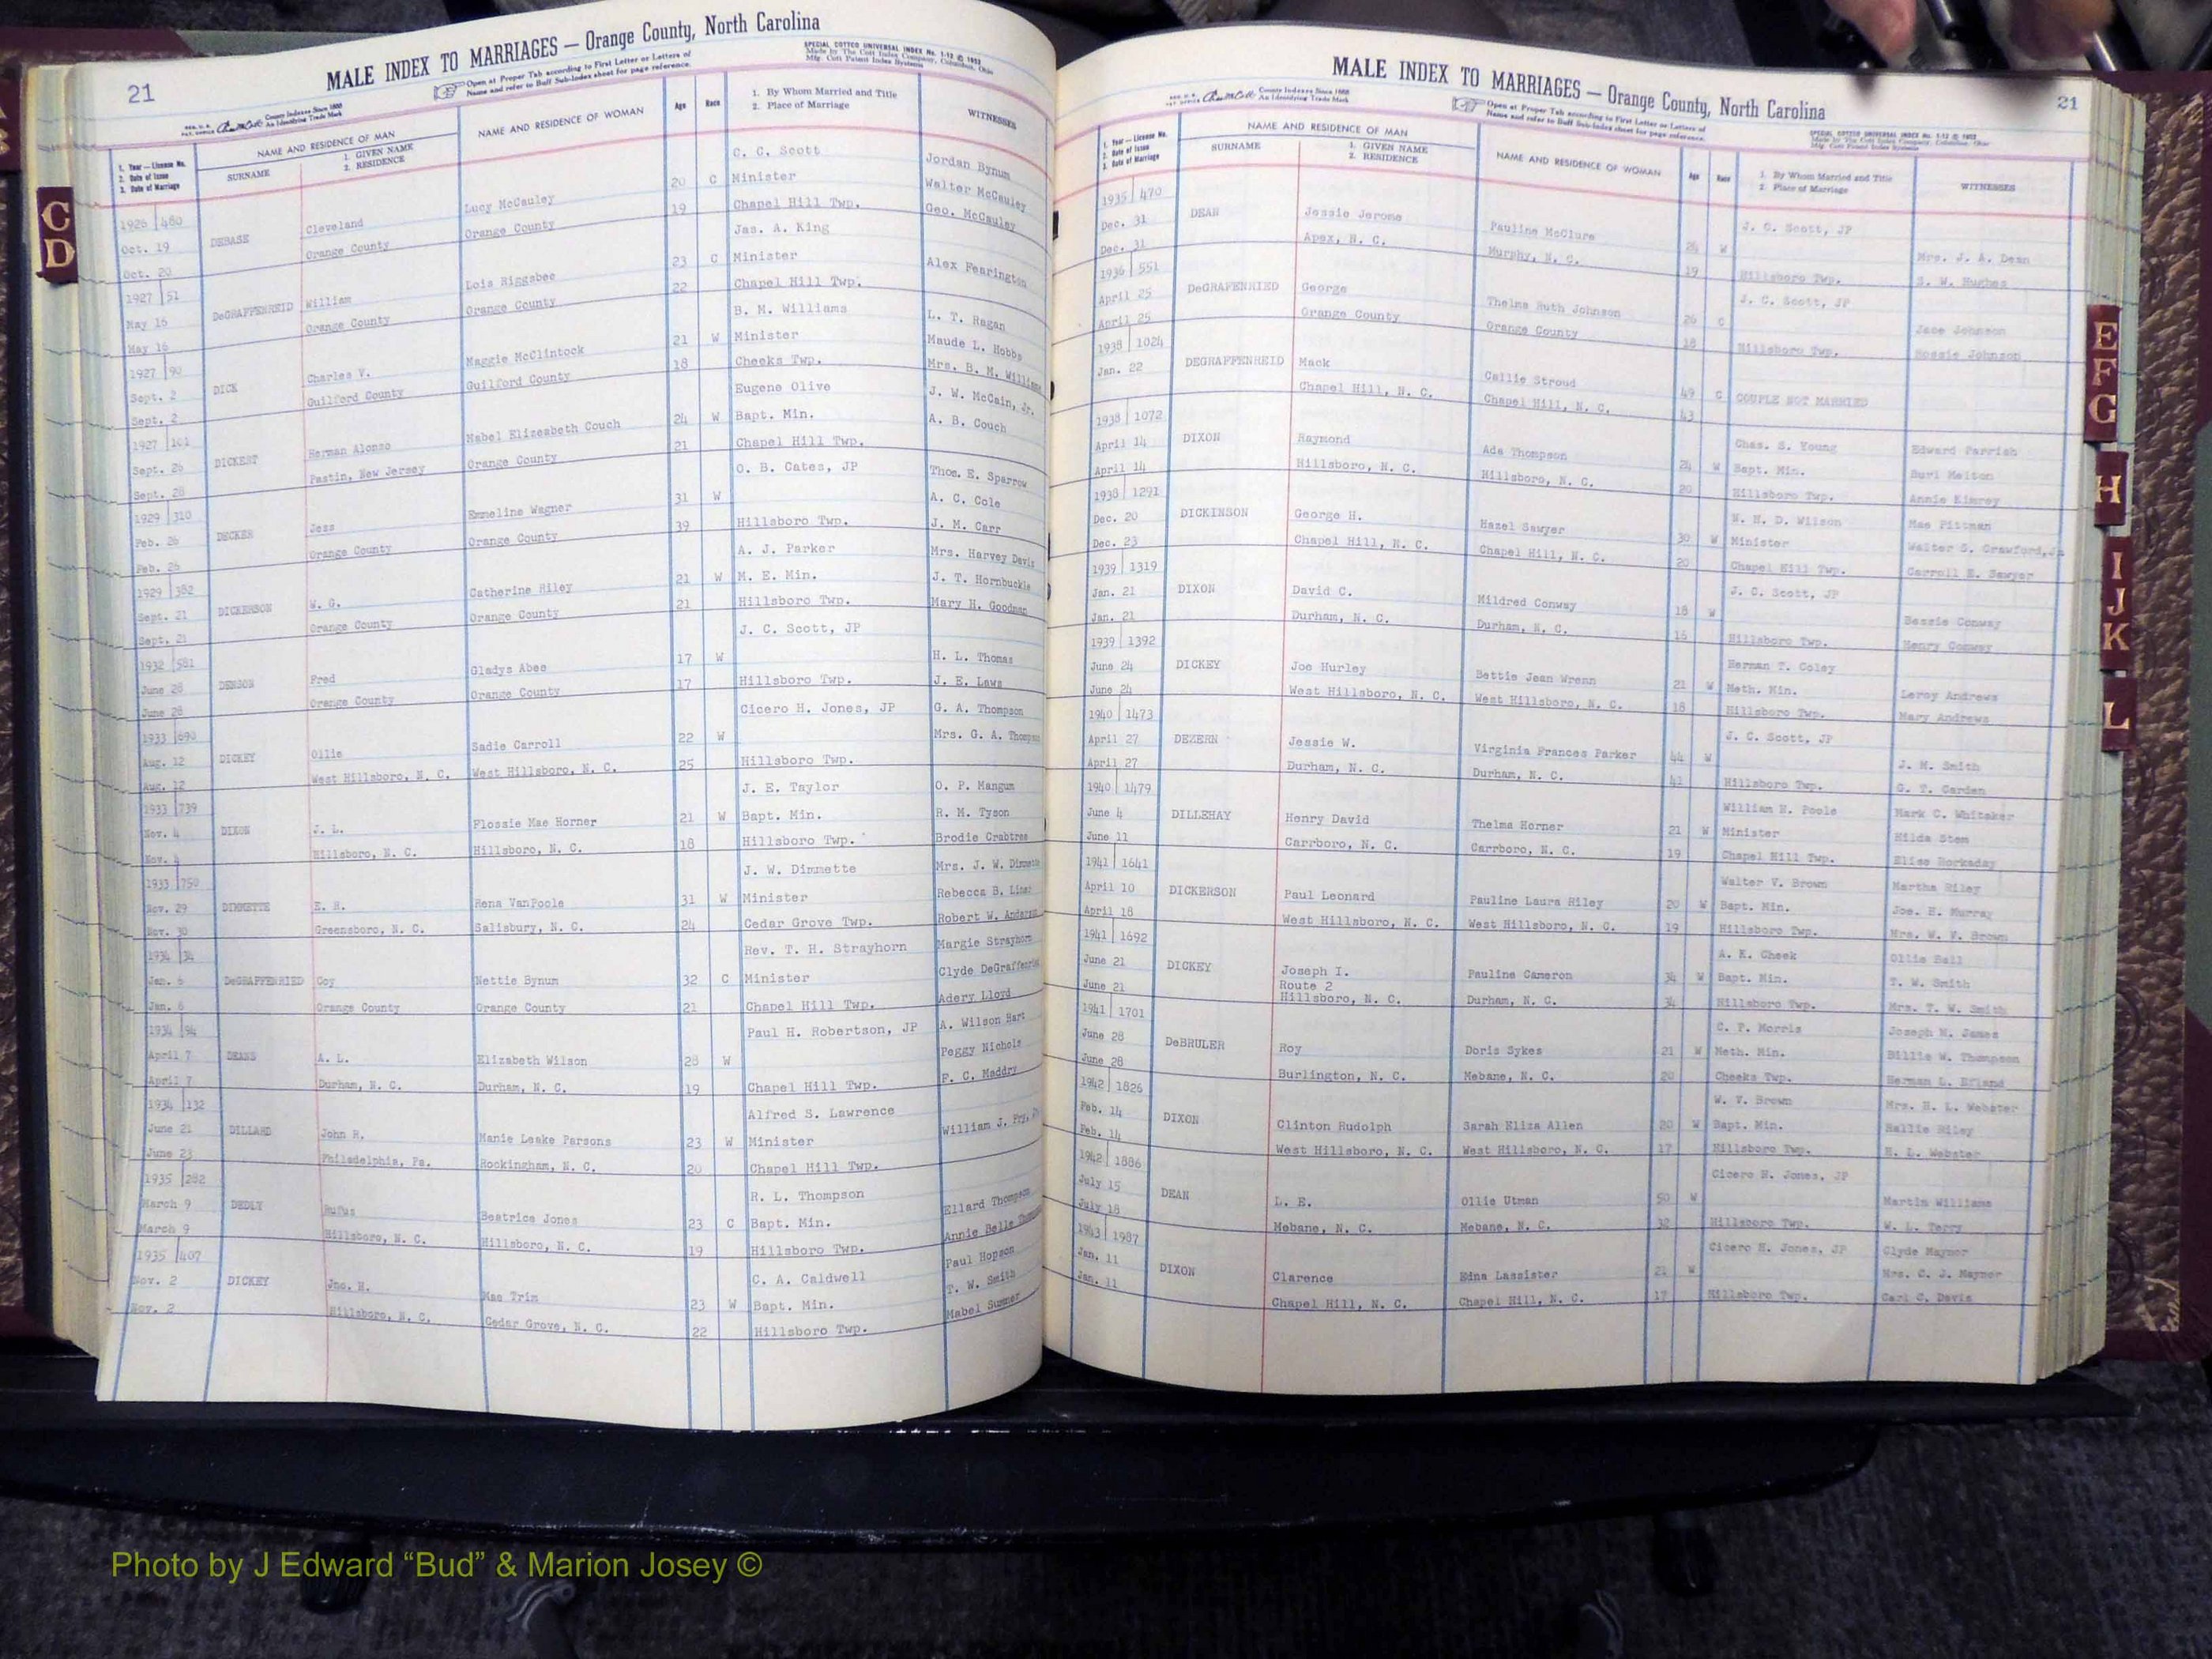 21
MALE INDEX TO MARRIAGES — Orange County, North Carolina
Open at Proper Tab according to First Letter or Letters of
Name and refer to Buff Sub-Index sheet for page reference.
SPECIAL COTTCO UNIVERSAL INDEX No. 1-12 © 1952
Made by The Cott Index Company, Columbus, Ohio
Mfg. Cott Patent Index Systems
County Indexes Since 1888
An Identifying Trade Mark
1. Year — License No.
2. Date of Issue
3. Date of Marriage
NAME AND RESIDENCE OF MAN
SURNAME
1. GIVEN NAME
2. RESIDENCE
NAME AND RESIDENCE OF WOMAN
Age
Race
1. By Whom Married and Title
2. Place of Marriage
WITNESSES
1926 480 C. C. Scott Jordan Bynum
Oct. 19 DEBASE Cleveland Lucy McCauley 20 C Minister Walter McCauley
Oct. 20 Orange County Orange County 19 Chapel Hill Twp. Geo. McCauley
1927 51 Jas. A. King
May 16 DeGRAFFENREID William Lois Riggsbee 23 C Minister Alex Fearington
May 16 Orange County Orange County 22 Chapel Hill Twp.
1927 90 B. M. Williams L. T. Hagan
Sept. 2 DICK Charles V. Maggie McClintock 21 W Minister Maude L. Hobbs
Sept. 2 Guilford County Guilford County 18 Cheeks Twp. Mrs. B. M. Williams
1927 101 Eugene Olive J. W. McCain, Jr.
Sept. 26 DICKERT Herman Alonzo Mabel Elizeabeth Couch 24 W Bapt. Min. A. B. Couch
Sept. 28 Pastin, New Jersey Orange County 21 Chapel Hill Twp.
1929 310 O. B. Cates, JP Thos. E. Sparrow
Feb. 26 DECKER Jess Emmeline Wagner 31 W A. C. Cole
Feb. 26 Orange County Orange County 39 Hillsboro Twp. J. M. Carr
1929 382 A. J. Parker Mrs. Harvey Davis
Sept. 21 DICKERSON W. G. Catherine Riley 21 W M. E. Min. J. T. Hornbuckle
Sept. 21 Orange County Orange County 21 Hillsboro Twp. Mary H. Goodman
1932 581 J. C. Scott, JP
June 28 DENSON Fred Gladys Abee 17 W H. L. Thomas
June 28 Orange County Orange County 17 Hillsboro Twp. J. E. Laws
1933 690 Cicero H. Jones, JP G. A. Thompson
Aug. 12 DICKEY Ollie Sadie Carroll 22 W Mrs. G. A. Thompson
Aug. 12 West Hillsboro, N. C. West Hillsboro, N. C. 25 Hillsboro Twp.
1933 739 J. E. Taylor O. P. Mangum
Nov. 4 DIXON J. L. Flossie Mae Horner 21 W Bapt. Min. R. M. Tyson
Nov. 4 Hillsboro, N. C. Hillsboro, N. C. 18 Hillsboro Twp. Brodie Crabtree
1933 750 J. W. Dimmette Mrs. J. W. Dimmette
Nov. 29 DIMMETTE E. R. Rena VanPoole 31 W Minister Rebecca B.
Nov. 30 Greensboro, N. C. Salisbury, N. C. 24 Cedar Grove Twp. Robert W. Anderson
1934 34 Rev. T. H. Strayhorn Margie Strayhorn
Jan. 6 DeGRAFFENRIED Coy Nettie Bynum 32 C Minister Clyde DeGraffenried
Jan. 6 Orange County Orange County 21 Chapel Hill Twp. Adery Lloyd
1934 94 Paul H. Robertson, JP A. Wilson Hart
April 7 DEANS A. L. Elizabeth Wilson 28 W Peggy Nichols
April 7 Durham, N. C. Durham, N. C. 19 Chapel Hill Twp. F. C. Maddry
1934 132 Alfred S. Lawrence
June 21 DILLARD John R. Manie Leake Parsons 23 W Minister William J. Fry,
June 23 Philadelphia, Pa. Rockingham, N. C. 20 Chapel Hill Twp.
1935 282 R. L. Thompson
March 9 DEDLY Rufus Beatrice Jones 23 C Bapt. Min. Ellard Thompson
March 9 Hillsboro, N. C. Hillsboro, N. C. 19 Hillsboro Twp. Annie Belle
1935 407 C. A. Caldwell Paul Hopson
Nov. 2 DICKEY Jno. H. Mae Trim 23 W Bapt. Min. T. W. Smith
Nov. 2 Hillsboro, N. C. Cedar Grove, N. C. 22 Hillsboro Twp. Mabel Summer
MALE INDEX TO MARRIAGES — Orange County, North Carolina
21
County Indexes Since 1888
An Identifying Trade Mark
Open at Proper Tab according to First Letter or Letters of
Name and refer to Buff Sub-Index sheet for page reference.
SPECIAL COTTCO UNIVERSAL INDEX No. 1-12 © 1952
Made by The Cott Index Company, Columbus, Ohio
Mfg. Cott Patent Index Systems
1. Year — License No.
2. Date of Issue
3. Date of Marriage
NAME AND RESIDENCE OF MAN
SURNAME
1. GIVEN NAME
2. RESIDENCE
NAME AND RESIDENCE OF WOMAN
Age
Race
1. By Whom Married and Title
2. Place of Marriage
WITNESSES
1935 470 J. C. Scott, JP
Dec. 31 DEAN Jessie Jerome Pauline McClure 24 W Mrs. J. A. Dean
Dec. 31 Apex, N. C. Murphy, N. C. 19 Hillsboro Twp. S. W. Hughes
1936 551 J. C. Scott, JP
April 25 DeGRAFENRIED George Thelma Ruth Johnson 26 C Jane Johnson
April 25 Orange County Orange County 18 Hillsboro Twp. Bossie Johnson
1938 1024
Jan. 22 DEGRAFFENREID Mack Callie Stroud 49 C COUPLE NOT MARRIED
Chapel Hill, N. C. Chapel Hill, N. C. 43
1938 1072 Chas. S. Young Edward Parrish
April 14 DIXON Raymond Ada Thompson 24 W Bapt. Min. Burl Melton
April 14 Hillsboro, N. C. Hillsboro, N. C. 20 Hillsboro Twp. Annie Kimrey
1938 1291 W. N. D. Wilson Mae Pittman
Dec. 20 DICKINSON George H. Hazel Sawyer 30 W Minister Walter S. Crawford, Jr
Dec. 23 Chapel Hill, N. C. Chapel Hill, N. C. 20 Chapel Hill Twp. Carroll E. Sawyer
1939 1319 J. C. Scott, JP
Jan. 21 DIXON David C. Mildred Conway 18 W Bessie Conway
Jan. 21 Durham, N. C. Durham, N. C. 16 Hillsboro Twp. Henry Conway
1939 1392 Herman T. Coley
June 24 DICKEY Joe Hurley Bettie Jean Wrenn 21 W Meth. Min. Leroy Andrews
June 24 West Hillsboro, N. C. West Hillsboro, N. C. 18 Hillsboro Twp. Mary Andrews
1940 1473 J. C. Scott, JP
April 27 DEZERN Jessie W. Virginia Frances Parker 44 W J. M. Smith
April 27 Durham, N. C. Durham, N. C. 41 Hillsboro Twp. G. T. Carden
1940 1479 William H. Poole Mark C. Whitaker
June 4 DILLEHAY Henry David Thelma Horner 21 W Minister Hilda Stem
June 11 Carrboro, N. C. Carrboro, N. C. 19 Chapel Hill Twp. Elise Rorkaday
1941 1641 Walter V. Brown Martha Riley
April 10 DICKERSON Paul Leonard Pauline Laura Riley 20 W Bapt. Min. Joe. H. Murray
April 18 West Hillsboro, N. C. West Hillsboro, N. C. 19 Hillsboro Twp. Mrs. W. V. Brown
1941 1692 A. K. Cheek Ollie Bell
June 21 DICKEY Joseph I. Pauline Cameron 34 W Bapt. Min. T. W. Smith
June 21 Route 2
Hillsboro, N. C. Durham, N. C. 34 Hillsboro Twp. Mrs. T. W. Smith
1941 1701 C. P. Morris Joseph M. James
June 28 DeBRULER Roy Doris Sykes 21 W Meth. Min. Billie W. Thompson
June 28 Burlington, N. C. Mebane, N. C. 20 Cheeks Twp. Herman L. Efland
1942 1826 W. V. Brown Mrs. H. L. Webster
Feb. 14 DIXON Clinton Rudolph Sarah Eliza Allen 20 W Bapt. Min. Hallie Riley
Feb. 14 West Hillsboro, N. C. West Hillsboro, N. C. 17 Hillsboro Twp. H. L. Webster
1942 1886 Cicero H. Jones, JP
July 15 DEAN L. E. Ollie Utman 50 W Martin Williams
July 18 Mebane, N. C. Mebane, N. C. 32 Hillsboro Twp. W. L. Terry
1943 1987 Cicero H. Jones, JP Clyde Maynor
Jan. 11 DIXON Clarence Edna Lassister 21 W Mrs. C. J. Maynor
Jan. 11 Chapel Hill, N. C. Chapel Hill, N. C. 17 Hillsboro Twp. Carl C. Davis
C
D
E
F
G
H
I
J
K
L
Photo by J Edward “Bud” & Marion Josey ©